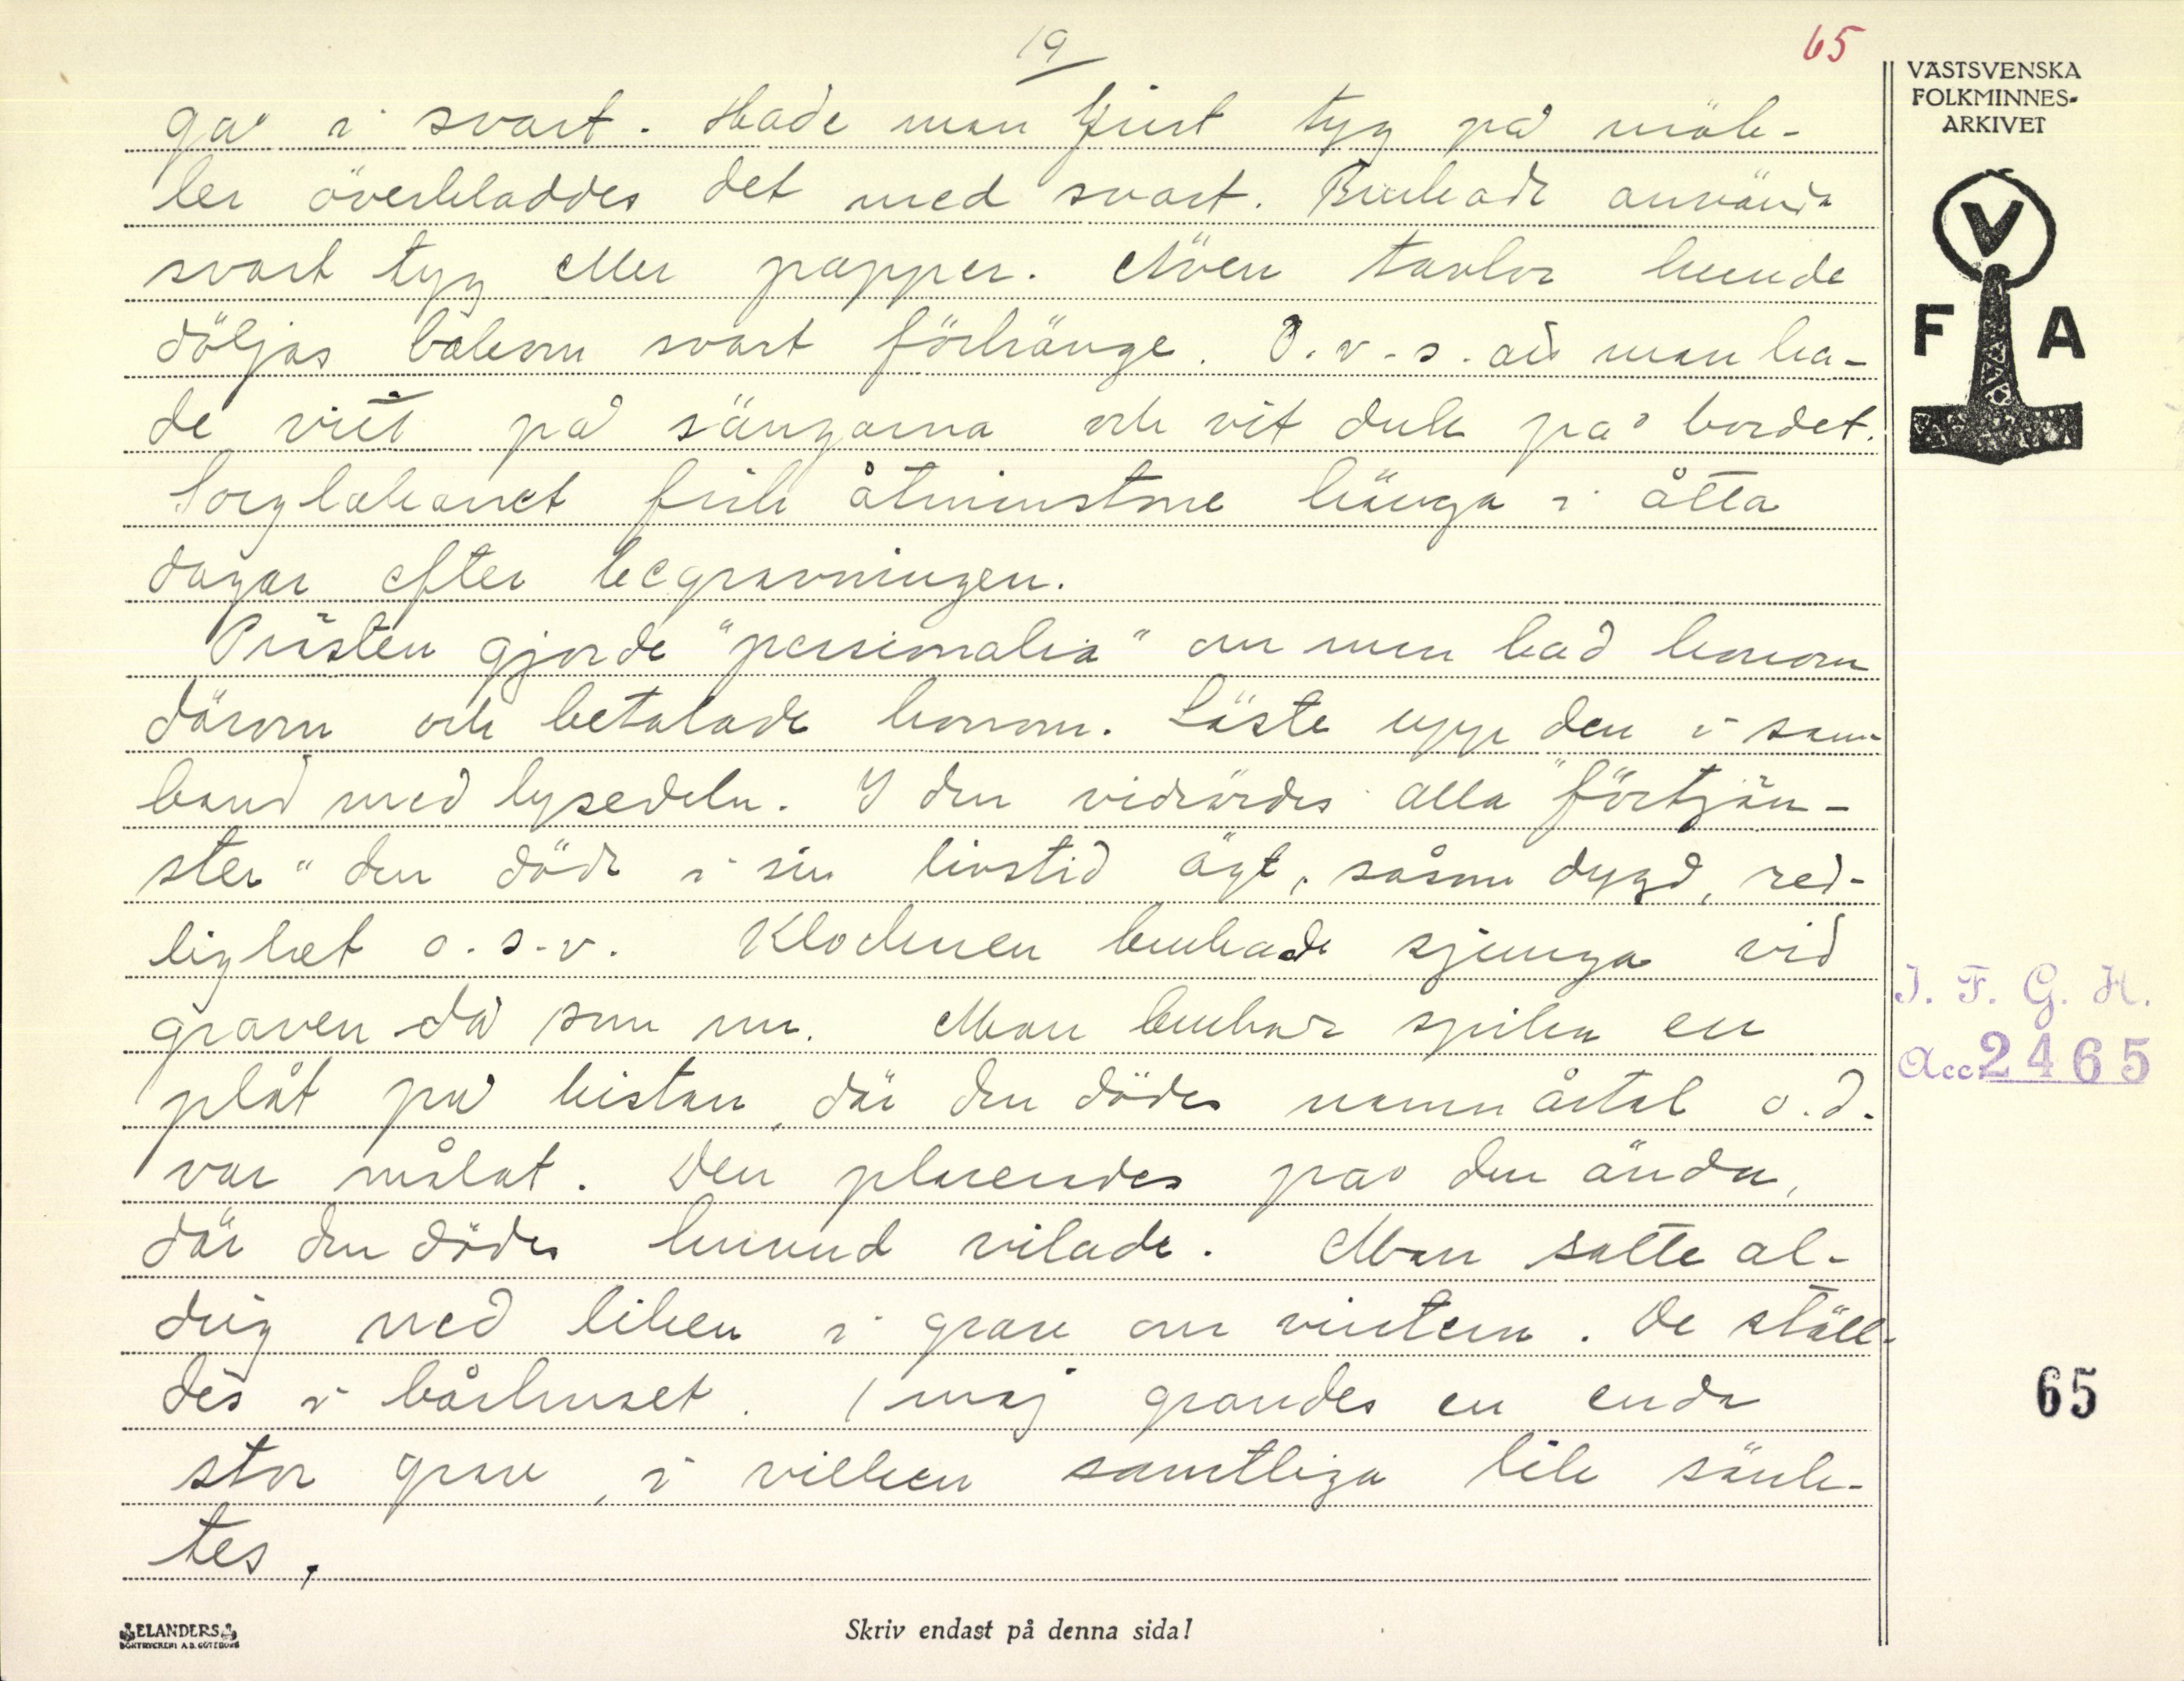 19
65
gå i svart. Hade man ljust tyg på möb-
ler överkläddes det med svart. Brukade använda
svart tyg eller papper. Även tavlor kunde
döljas bakom svart förhänge. O.v.s. att man ha-
de vitt på sängarna och vit duk på bordet.
Sorglakanet fick åtminstone hänga i åtta
dagar efter begravningen.
Prästen gjorde "personalia" om man bad honom
därom och betalade honom. Läste upp den i sam-
band med lysedeln. I den vidrördes alla "förtjän-
ster" den döde i sin livstid ägt, såsom dygd, red-
lighet o.s.v. Klockaren brukade sjunga vid
graven då som nu. Man brukar spika en
plåt på kistan, där den dödes namn årtal o.d.
var målat. Den placerades på den ända,
där den dödes huvud vilade. Man satte al-
drig ned liken i grav om vintern. De ställ-
des i bårhuset. I maj grävdes en enda
stor grav, i vilken samtliga lik sänk-
tes.
VÄSTSVENSKA
FOLKMINNES-
ARKIVET
V
F A
I. F. G. H.
Acc. 2465
65
ELANDERS
BOKTRYCKERI A.B. GÖTEBORG
Skriv endast på denna sida!